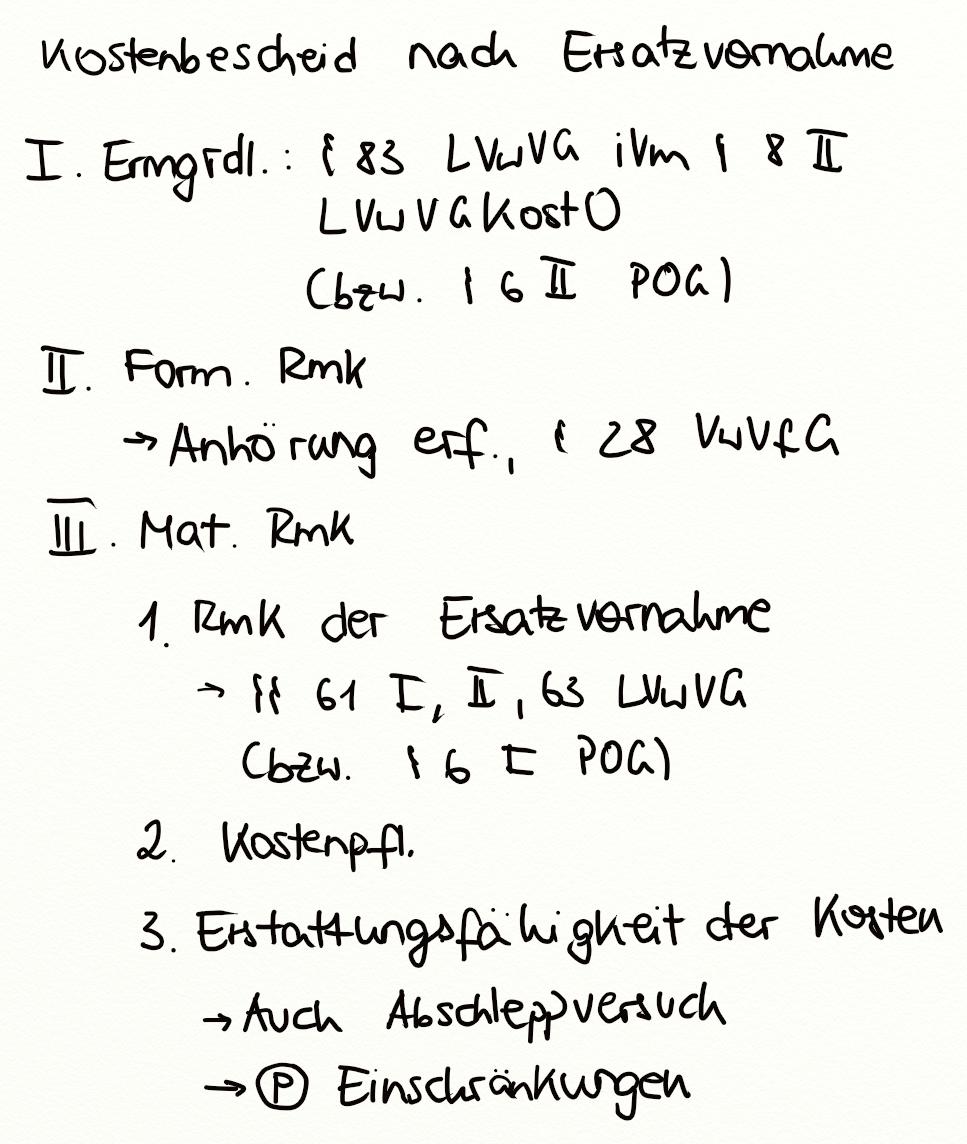 Kostenbescheid nach Ersatzvornahme
I. Ermgrdl.: § 83 LVwVG iVm § 8 II
LVwVGKostO
(bzw. § 6 II POG)
II. Form. Rmk
→ Anhörung erf., § 28 VwVfG
III. Mat. Rmk
1. Rmk der Ersatzvornahme
→ §§ 61 I, II, 63 LVwVG
(bzw. § 6 I POG)
2. Kostenpfl.
3. Erstattungsfähigkeit der Kosten
→ Auch Abschleppversuch
→ Ⓟ Einschränkungen